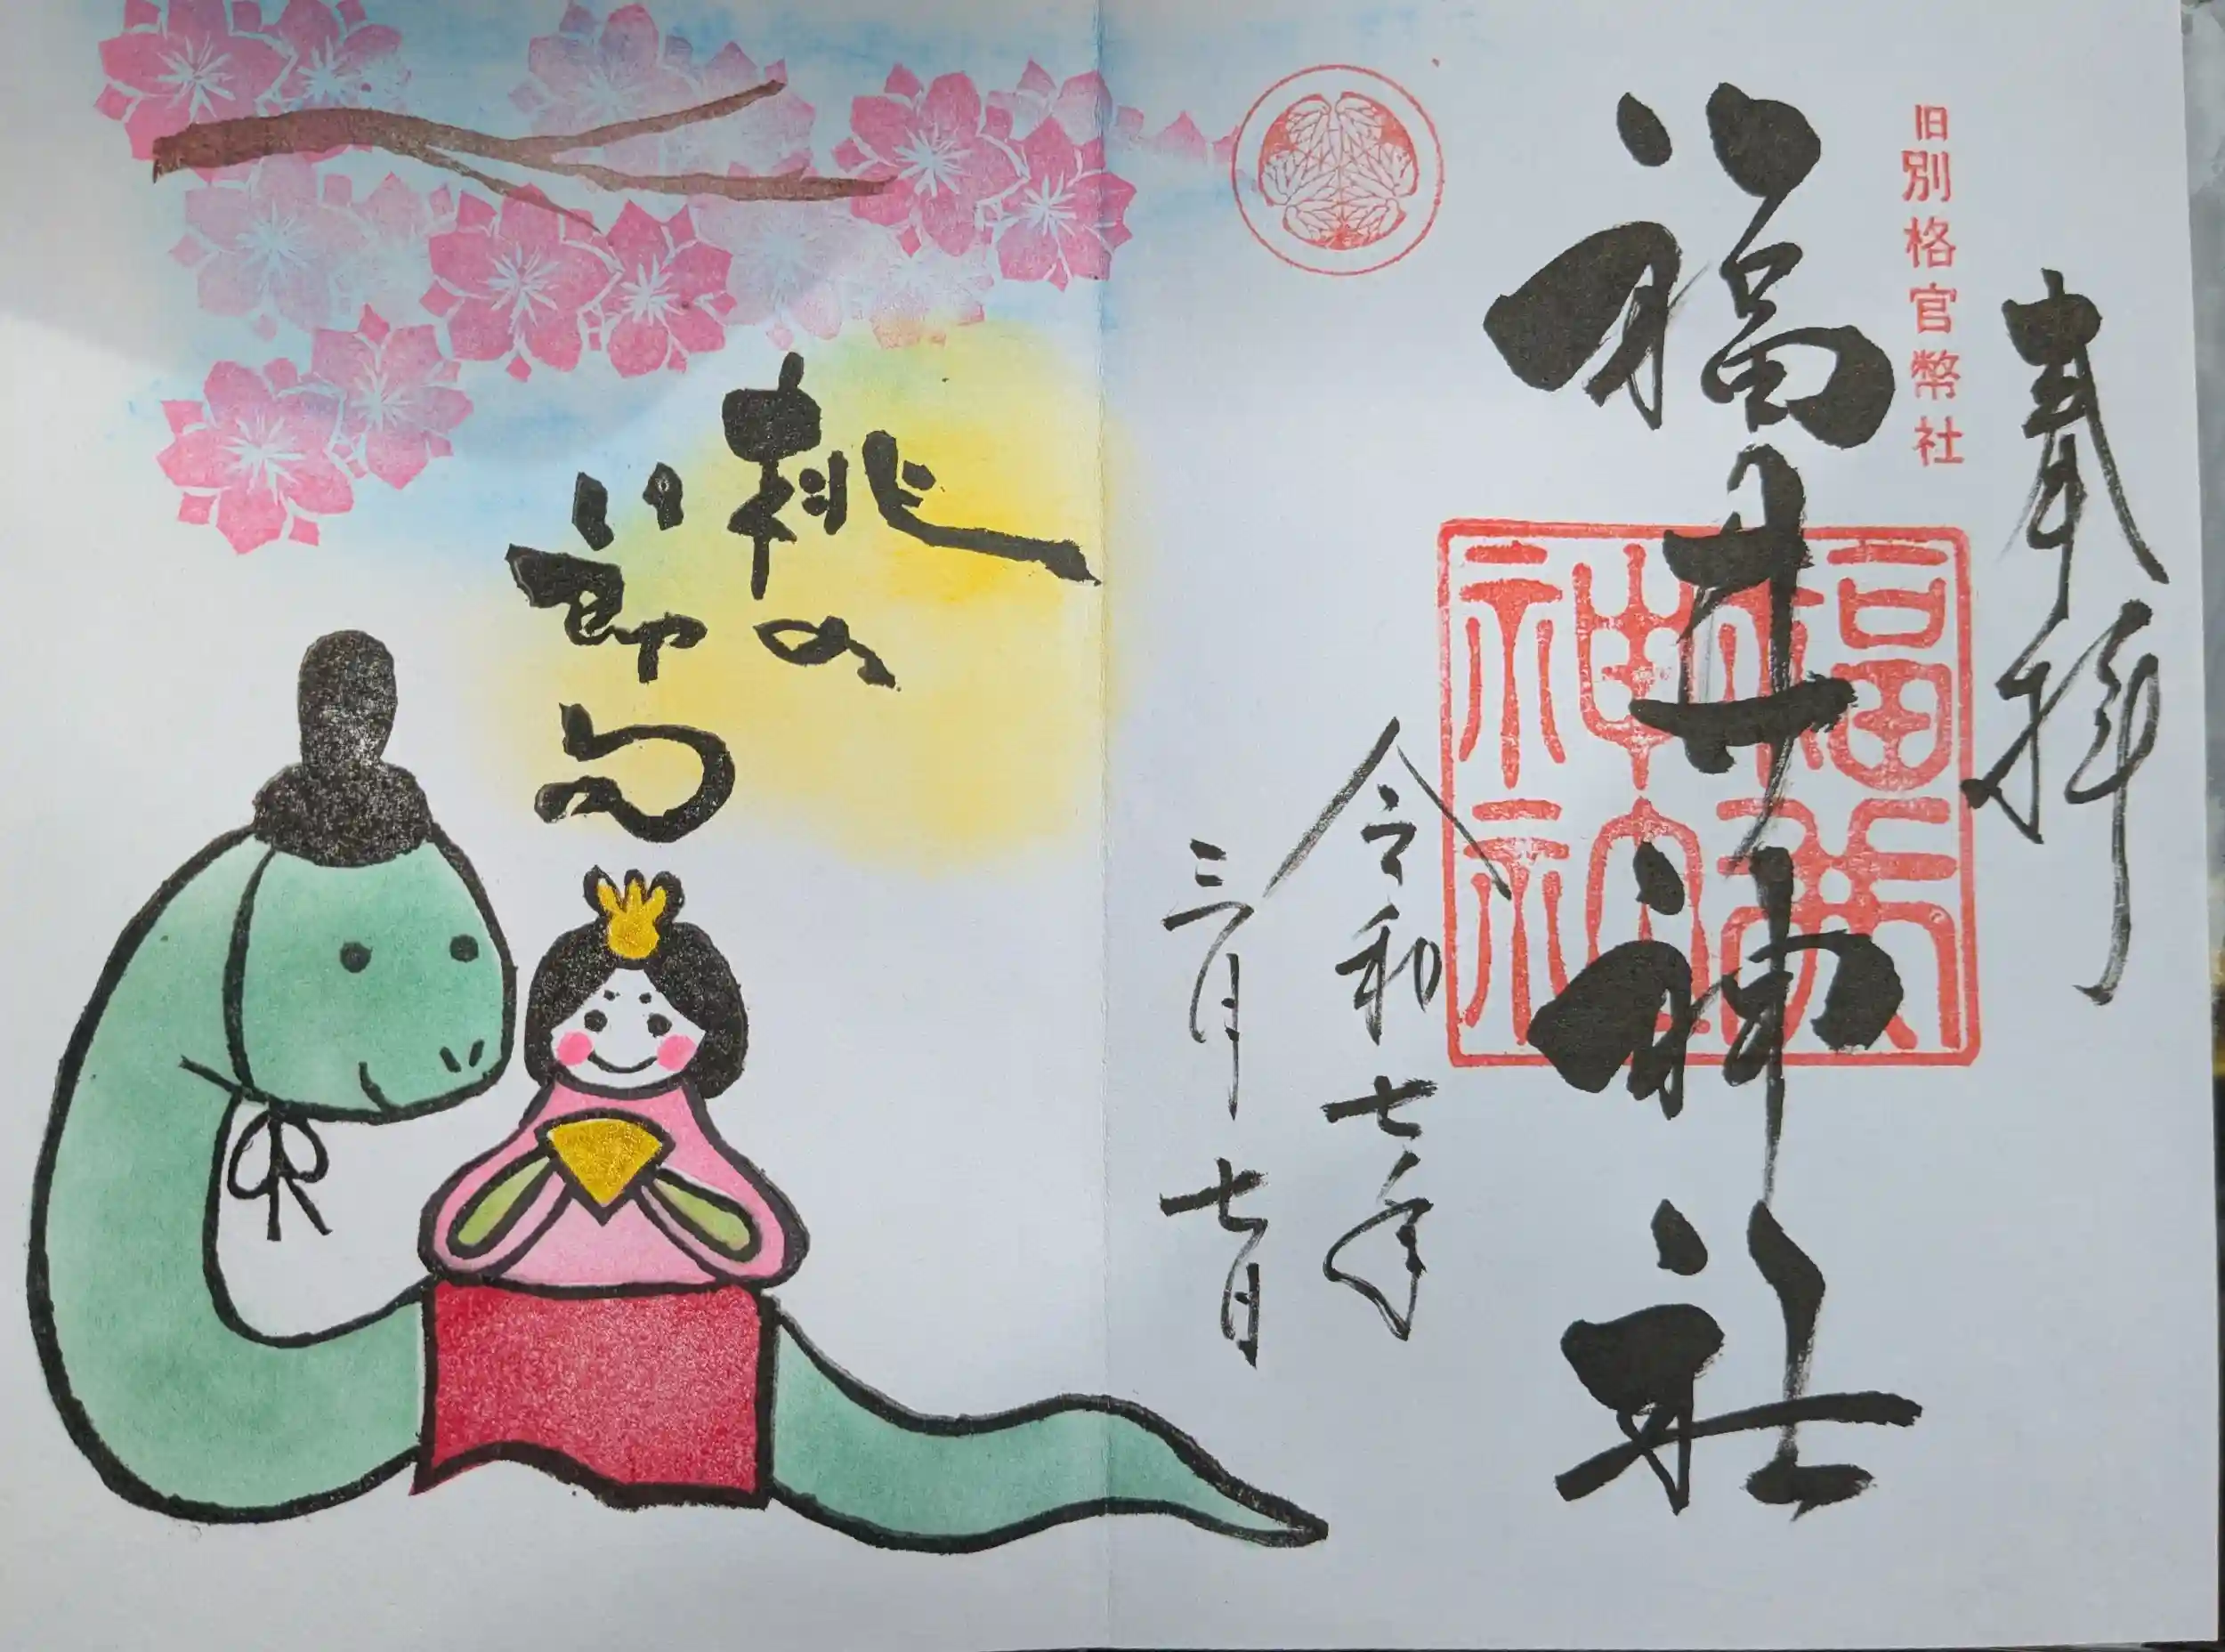 奉拝
旧別格官幣社
福井神社
福井神社
令和七年
三月七日
桃の
節句